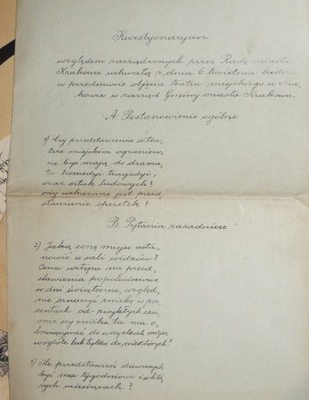 Kwestyonaryusz
względem zarządzonych przez Radę miasta
Krakowa uchwałą z dnia 6 kwietnia badań
w przedmiocie objęcia teatru miejskiego w Kra-
kowie w zarząd Gminy miasta Krakowa.
A. Postanowienie ogólne
1) Czy przedstawienia w tea-
trze miejskim ograniczo-
ne być mają do drama-
tu komedyi, tragedyi,
oraz sztuk ludowych?
czy wskazane jest przed-
stawianie operetek?
B. Pytania zasadnicze
2) Jaką cenę miejsc usta-
nowić w sali widzów?
Cena wstępu na przed-
stawienia popołudniowe
w dni świąteczne, względ-
nie oznaczyć zniżkę w pro-
centach od zwykłych cen,
oraz czy zniżka ta ma o-
bowiązywać do wszystkich miejsc
w ogóle lub tylko do niektórych?
3) Ile przedstawień dawanych
być ma tygodniowo i w któ-
rych miesiącach?